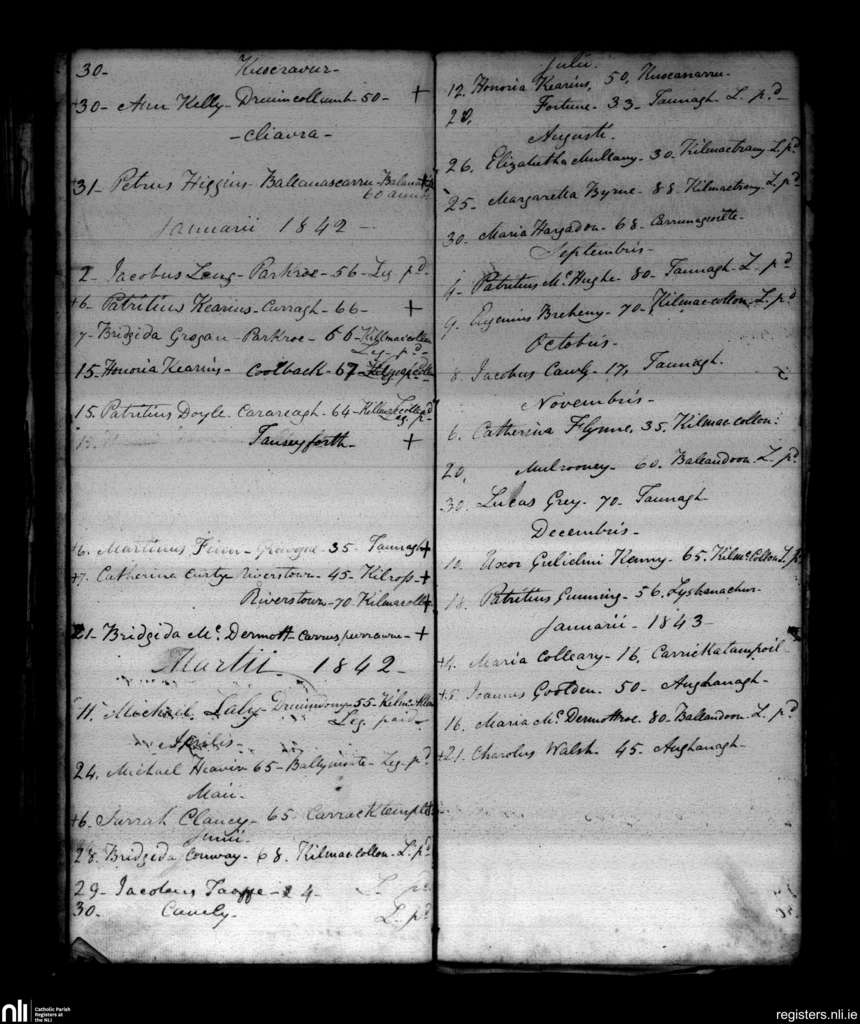 30-
30- Ann Kelly- Drumcollumb- 50- +
-Cliavra-
31- Petrus Higgins- 60
Januarii 1842-
2- Jacobus Leng- Parkroe- 56- Leg pd-
+6- Patritius Kearins- Carragh- 66- +
7- Bridgida Grogan- Parkroe- 66- Killmacollen
Leg- pd-
15- Honoria Kearins- Coolback- 67-
15. Patritius Doyle- 64-
Leg pd
Tanseyforth- +
+6. Martinus Finn- 35- Taunagh+
+7. Catherina Riverstown- 45- Kilross- +
Riverstown- 70 +
21- Bridgida Mc Dermott- +
Martii- 1842-
11. Michael 55-
Leg. paid-
Aprilis-
24. Michael 65- Ballymoate- Leg- pd
Maii-
+6- Sarrah Clancy- 65.
Junii-
28. Bridgida Conway- 68. Kilmacollon- L. pd
29- Jacobus Taaffe- 24- L. pd
30. Cawely- L. pd
Julii-
12. Honoria Kearins, 50,
20. Fortune- 33- Taunagh- L. pd-
Augusti-
26. Elizabetha Mullany- 30- Kilmactrany- L. pd
25- Margaretta Byrne- 88- Kilmactrany- L. pd
30- Maria Hargadon- 68-
Septembris-
4- Patritius Mc Hughe- 80- Taunagh- L. pd
9. Eugenius Breheny- 70- Kilmacollon- L. pd
Octobris-
8. Jacobus Cawly- 17, Taunagh.
Novembris-
6. Catherina Flynne, 35. Kilmacollon:
20, Mulrooney- 60. Baleandoon- L. pd
30. Lucas Grey- 70- Taunagh
Decembris-
10. Uxor Gulielmi Kenny- 65. Kilmc Collon L. pd
18. Patritius Gunning- 56.
Januarii- 1843-
+4. Maria Colleary- 16, Carrickatampoil-
+5. Joannes Goolden. 50- Aughanagh-
16. Maria Mc Dermothroe. 80- Baleandoon- L. pd
+21. Charolus Walsh. 45. Aughanagh-
nli
Catholic Parish
Registers at
the NLI
registers.nli.ie